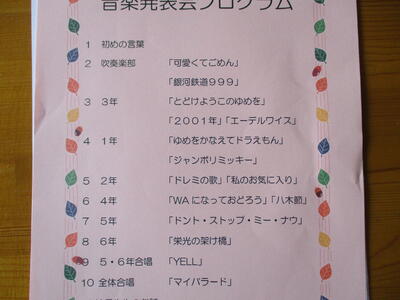 音楽発表会プログラム
1 初めの言葉
2 吹奏楽部 「可愛くてごめん」
「銀河鉄道999」
3 3年 「とどけようこのゆめを」
「2001年」「エーデルワイス」
4 1年 「ゆめをかなえてドラえもん」
「ジャンボリミッキー」
5 2年 「ドレミの歌」「私のお気に入り」
6 4年 「WAになっておどろう」「八木節」
7 5年 「ドント・ストップ・ミー・ナウ」
8 6年 「栄光の架け橋」
9 5・6年合唱 「YELL」
10 全体合唱 「マイバラード」